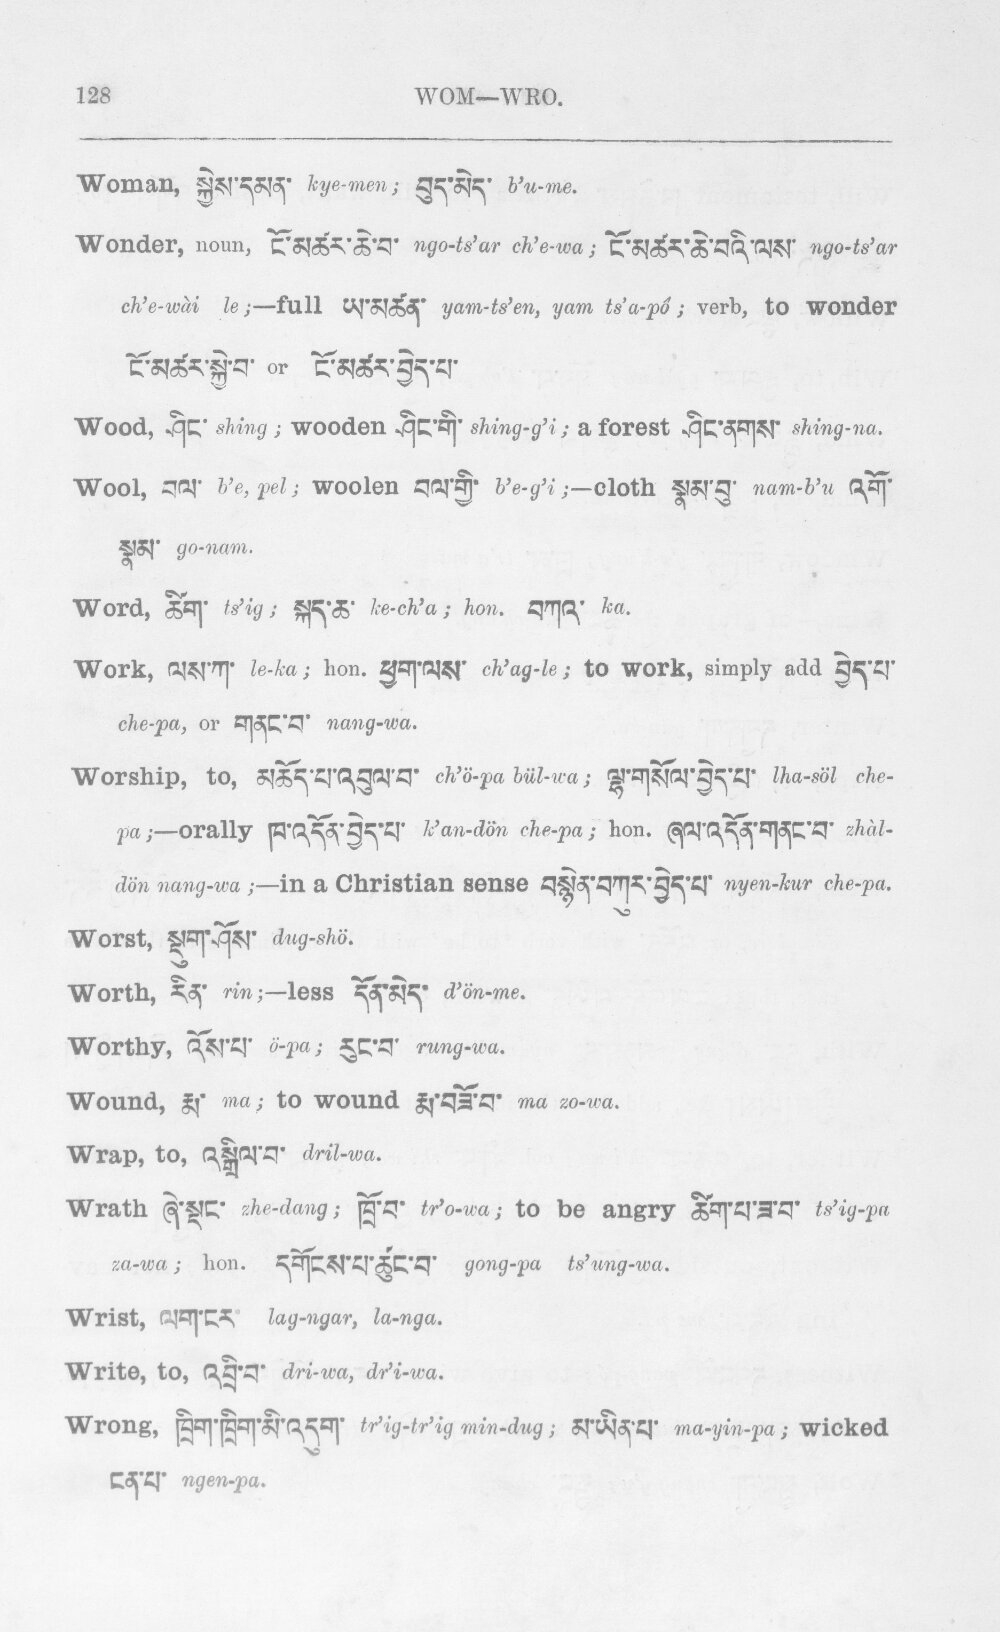 128 WOM—WRO.
Woman, སྐྱེས་དམན་ kye-men; བུད་མེད་ b'u-me.
Wonder, noun, ངོ་མཚར་ཆེ་བ་ ngo-ts'ar ch'e-wa; ངོ་མཚར་ཆེ་བའི་ལས་ ngo-ts'ar
ch'e-wài le;—full ཡ་མཚན་ yam-ts'en, yam ts'a-pó; verb, to wonder
ངོ་མཚར་སྐྱེ་བ་ or ངོ་མཚར་བྱེད་པ་
Wood, ཤིང་ shing; wooden ཤིང་གི་ shing-g'i; a forest ཤིང་ནགས་ shing-na.
Wool, བལ་ b'e, pel; woolen བལ་གྱི་ b'e-g'i;—cloth སྣམ་བུ་ nam-b'u འགོ་
སྣམ་ go-nam.
Word, ཚིག་ ts'ig; སྐད་ཆ་ ke-ch'a; hon. བཀའ་ ka.
Work, ལས་ཀ་ le-ka; hon. ཕྱག་ལས་ ch'ag-le; to work, simply add བྱེད་པ་
che-pa, or གནང་བ་ nang-wa.
Worship, to, མཆོད་པ་འབུལ་བ་ ch'ö-pa bül-wa; ལྷ་གསོལ་བྱེད་པ་ lha-söl che-
pa;—orally ཁ་འདོན་བྱེད་པ་ k'an-dön che-pa; hon. ཞལ་འདོན་གནང་བ་ zhàl-
dön nang-wa;—in a Christian sense བསྙེན་བཀུར་བྱེད་པ་ nyen-kur che-pa.
Worst, སྡུག་ཤོས་ dug-shö.
Worth, རིན་ rin;—less དོན་མེད་ d'ön-me.
Worthy, འོས་པ་ ö-pa; རུང་བ་ rung-wa.
Wound, རྨ་ ma; to wound རྨ་བཟོ་བ་ ma zo-wa.
Wrap, to, འསྒྲིལ་བ་ dril-wa.
Wrath ཞེ་སྡང་ zhe-dang; ཁྲོ་བ་ tr'o-wa; to be angry ཚིག་པ་ཟ་བ་ ts'ig-pa
za-wa; hon. དགོངས་པ་ཚུང་བ་ gong-pa ts'ung-wa.
Wrist, ལག་ངར་ lag-ngar, la-nga.
Write, to, འབྲི་བ་ dri-wa, dr'i-wa.
Wrong, ཁྲིག་ཁྲིག་མི་འདུག་ tr'ig-tr'ig min-dug; མ་ཡིན་པ་ ma-yin-pa; wicked
ངན་པ་ ngen-pa.